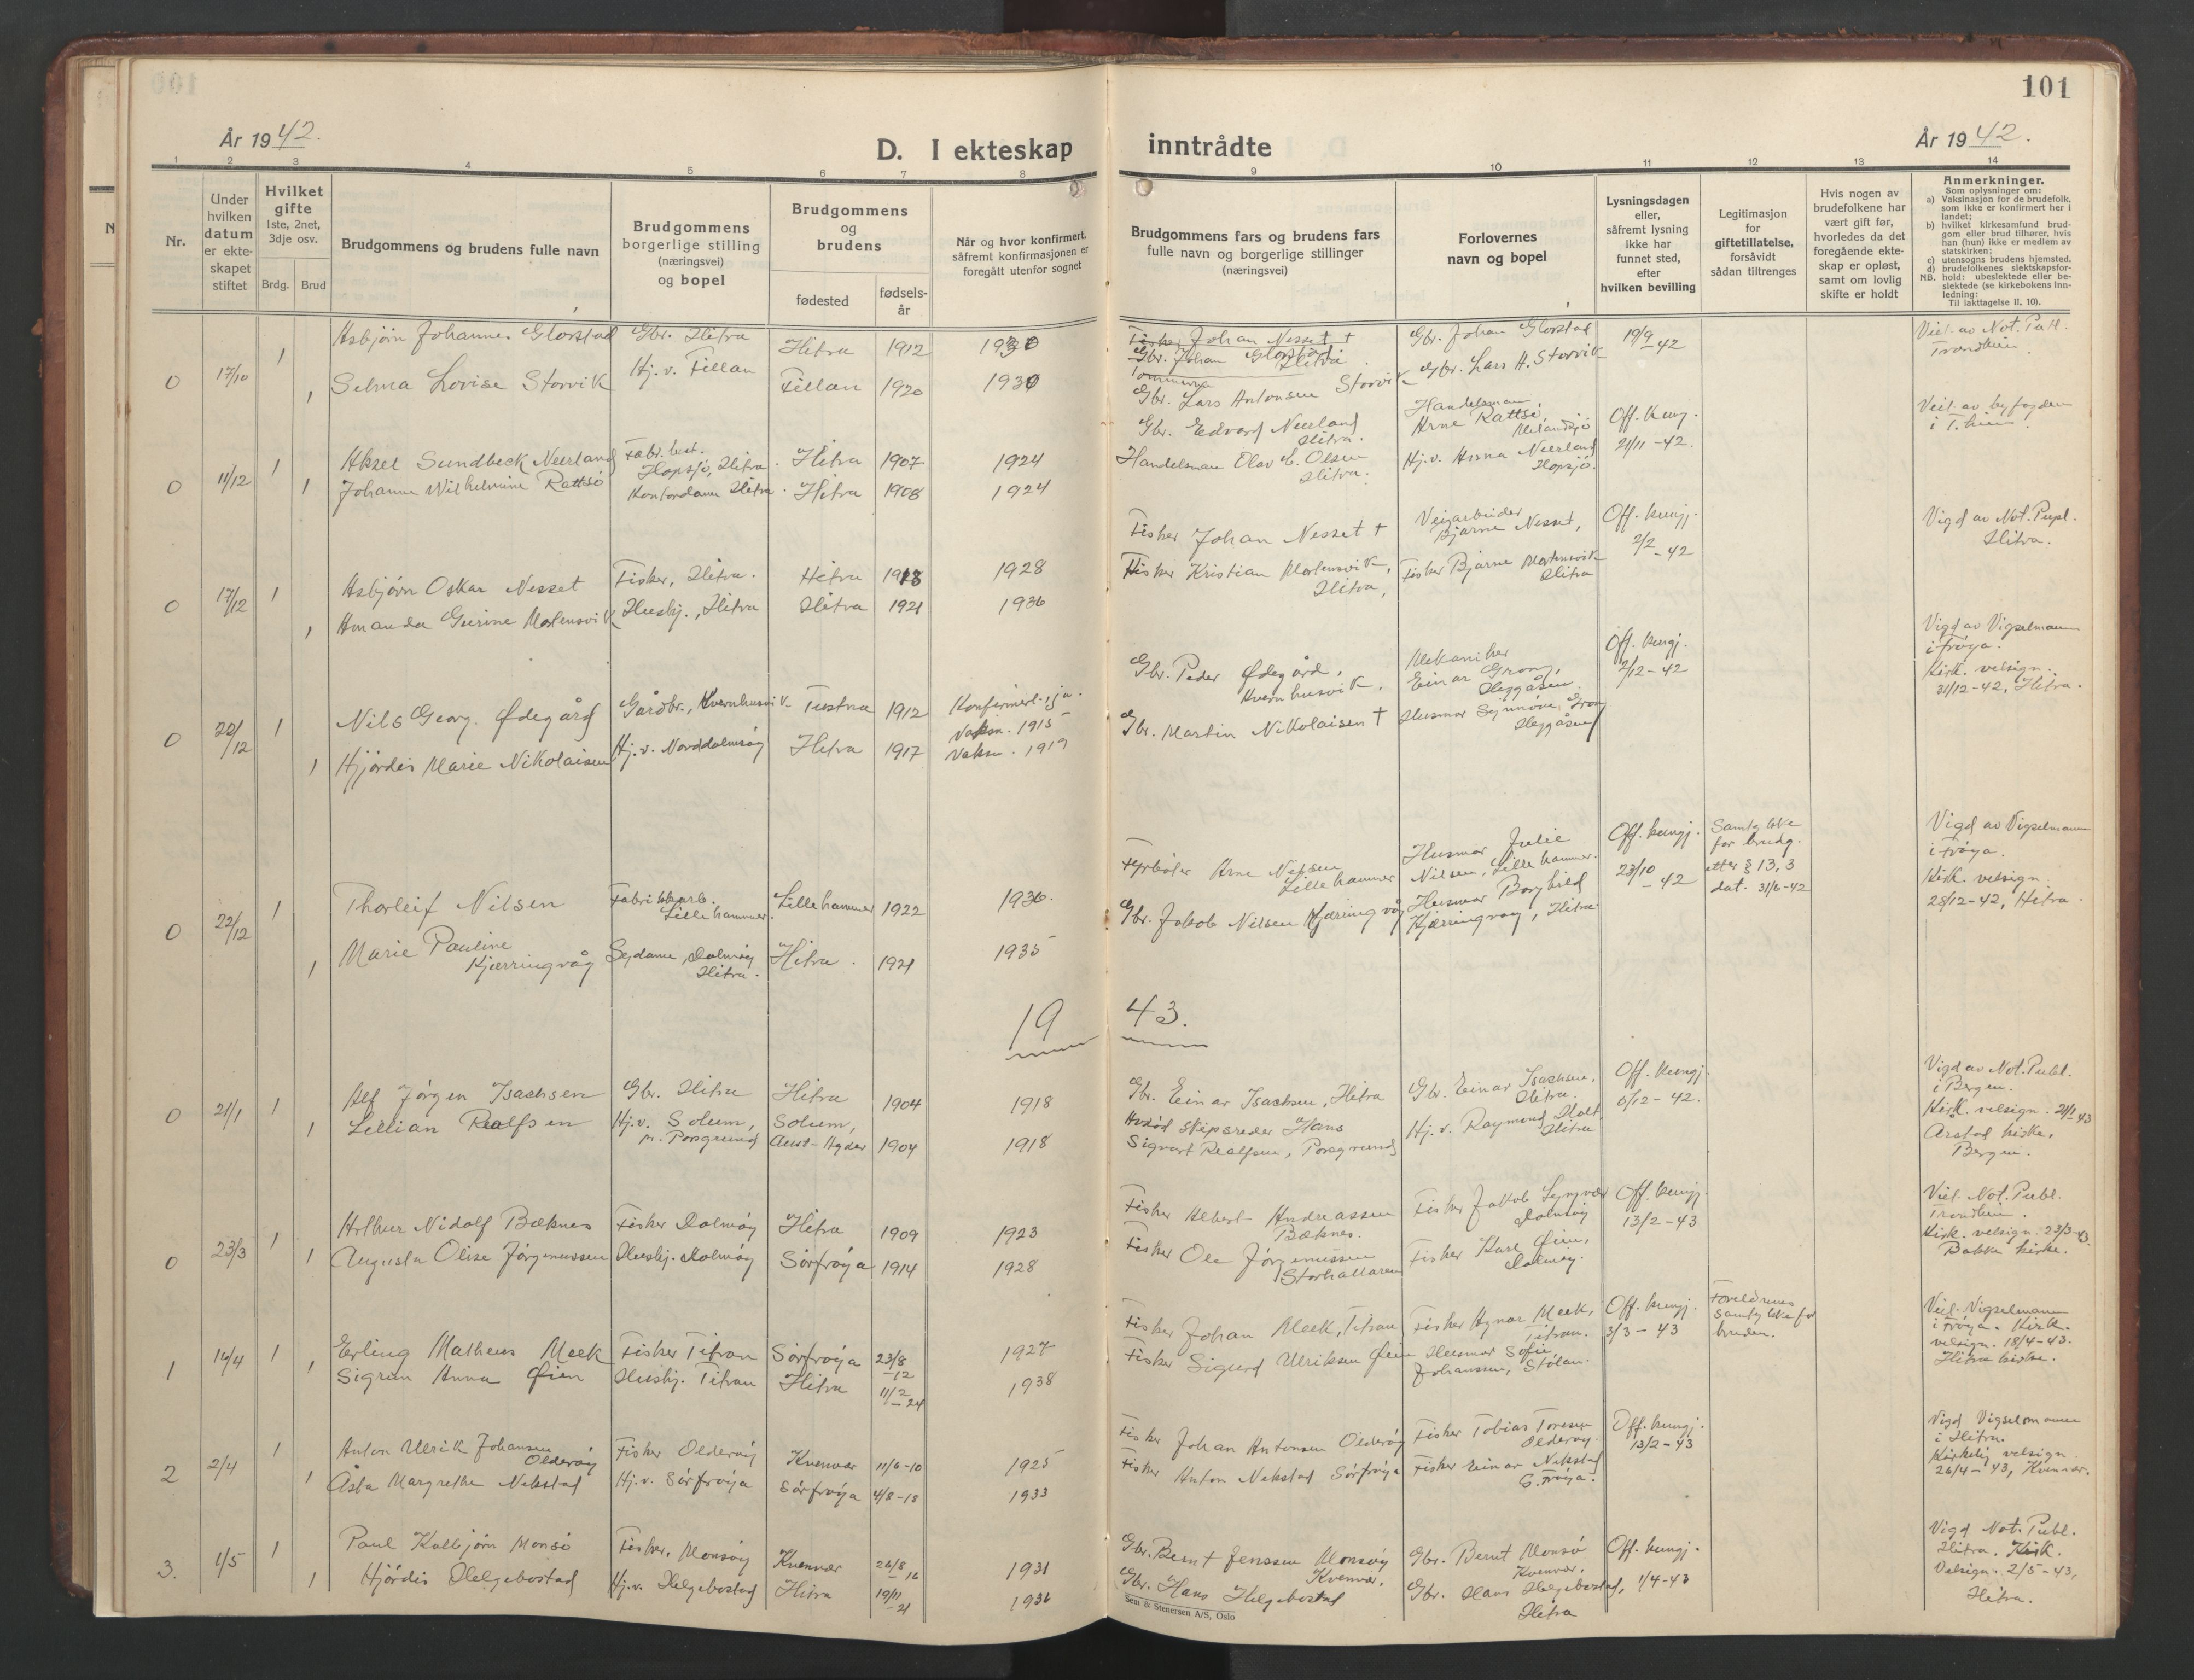 101
År 1942.
D. I ekteskap inntrådte
År 1942.
1 2 3 4 5 6 7 8 9 10 11 12 13 14
Nr.
Under hvilken datum er ekteskapet stiftet
Hvilket gifte
1ste, 2net, 3dje osv.
Brdg. Brud
Brudgommens og brudens fulle navn
Brudgommens borgerlige stilling (næringsvei) og bopel
Brudgommens og brudens
fødested
fødsels-
år
Når og hvor konfirmert,
såfremt konfirmasjonen er
foregått utenfor sognet
Brudgommens fars og brudens fars
fulle navn og borgerlige stillinger
(næringsvei)
Forlovernes
navn og bopel
Lysningsdagen
eller,
såfremt lysning
ikke har
funnet sted,
efter
hvilken bevilling
Legitimasjon
for
giftetillatelse,
forsåvidt
sådan tiltrenges
Hvis nogen av
brudefolkene har
vært gift før,
hvorledes da det
foregående ekte-
skap er opløst,
samt om lovlig
skifte er holdt
Anmerkninger.
Som oplysninger om:
a) Vaksinasjon for de brudefolk,
som ikke er konfirmert her i
landet;
b) hvilket kirkesamfund brud-
gom eller brud tilhører, hvis
han (hun) ikke er medlem av
statskirken;
c) utensogns brudens hjemsted.
d) brudefolkenes slektskapsfor-
NB. hold: ubeslektede eller be-
slektede (se kirkebokens inn-
ledning:
Til iakttagelse II, 10).
0 17/10 1 Asbjørn Johannes Glørstad Gbr. Hitra Hitra 1912 1930
1 Selma Lovise Storvik Hj. v. Fillan Fillan 1920 1930
Fisker Johan Nesset †
Gbr. Johan Glørstad
Hitra
Gbr. Lars Antonsen Storvik
Gbr. Johan Glørstad
Gbr. Lars H. Storvik
19/9 42
Viet av Not. Publ.
Trondheim
0 11/12 1 Aksel Sundbeck Neerland Fabr.best. Hopsjø, Hitra. Hitra 1907 1924
1 Johanne Wilhelmine Rattsø Kontordame Hitra. Hitra 1908 1924
Gbr. Edvard Neerland
Hitra.
Handelsman Olav E. Olsen
Hitra.
Handelsman
Arne Rattsø,
Melandsjø
Hj.v. Anna Neerland
Hopsjø.
Off. kung.
21/11 -42.
Viet av byfogden
i T.heim
0 17/12 1 Asbjørn Oskar Nesset Fisker, Hitra. Hitra 1913 1928
1 Amanda Gurine Mortensvik Husbj., Hitra Hitra 1921 1936
Fisker Johan Nesset †
Fisker Kristian Mortensvik,
Hitra,
Veiarbeider
Bjarne Nesset,
Fisker Bjarne Mortensvik
Hitra
Off. kungj.
2/2 -42
Vigd av Not. Pupl.
Hitra.
0 22/12 1 Nils Georg. Ødegård Gårdbr., Kvernhusvik Tustna 1912 Konfirmert: ja.
Vaksin. 1915
1 Hjørdis Marie Nikolaisen Hj.v. Norddolmøy Hitra 1917 Vaksn. 1919
Gbr. Peder Ødegård,
Kvernhusvik.
Gbr. Martin Nikolaisen †
Mekaniker
Einar Grong,
Heggåsen.
Husmor Synnøve Grong
Heggåsen
Off. kungj.
2/12 - 42
Vigd av Vigselmann
i Frøya.
Kirk. velsign.
31/12-42, Hitra.
0 22/12 1 Thorleif Nilsen Fabrikkarb. Lillehammer. Lillehammer 1922 1936.
1 Marie Pauline
Kjerringvåg Sydame, Dolmøy Hitra. Hitra. 1921 1935
Fyrbøter Arne Nilsen
Lillehammer
Gbr. Jakob Nilsen Kjerringvåg
Husmor Julie
Nilsen, Lillehammer.
Husmor Borghild
Kjerringvåg, Hitra.
Off. kungj.
23/10 - 42
Samtykke
for brudg.
etter § 13, 3
dat. 31/6-42
Vigd av Vigselmann
i Frøya.
Kirk. velsign.
28/12-42, Hitra.
19 43.
0 21/1 1 Alf Jørgen Isachsen Gbr. Hitra Hitra 1904 1918
1 Lillian Realfsen Hj.v. Solum, p. Porsgrund Solum, Aust-Agder 1904 1918
Gbr. Einar Isachsen, Hitra
Avdød skipsreder Hans
Sigvart Realfsen, Porsgrund
Gbr. Einar Isachsen,
Hitra.
Hj.v. Raymond Holt
Hitra
Off. kungj.
5/12 - 42.
Vigd av Not. Publ.
i Bergen.
Kirk. velsign. 21/1-43
Årstad kirke,
Bergen.
0 23/3 1 Arthur Nidolf Bæknes Fisker Dolmøy Hitra 1909 1923
1 Augusta Olise Jørgensen Husbj. Dolmøy Sørfrøya 1914 1928
Fisker Albert Andreassen
Bæknes.
Fisker Ole Jørgensen
Storhallaren
Fisker Jakob Lyngvær
Dolmøy
Fisker Karl Øien,
Dolmøy.
Off. kungj.
13/2 - 43
Viel. Not. Publ.
Trondheim.
Kirk. velsign. 23/3-43.
Bakke kirke.
1 16/4 1 Erling Matheus Meek Fisker Titran Sørfrøya 23/8 -12 1927
1 Sigrun Anna Øien Husbj. Titran Hitra 11/2 - 24 1938
Fisker Johan Meek, Titran
Fisker Sigurd Ulriksen Øien
Fisker Agnar Meek,
Titran.
Husmor Sofie
Johansen, Stølan.
Off. kungj.
3/3 - 43
Foreldrenes
samtykke for
bruden.
Viel. Vigselmann
i Frøya. Kirk.
velsign. 18/4-43.
Hitra kirke.
2 2/4 1 Anton Ulrik Johansen
Olderøy Fisker Olderøy Kvenvær 11/6-10 1925
1 Åsta Margrethe Nekstad Hj.v. Sørfrøya Sørfrøya 4/8-18 1933
Fisker Johan Antonsen Olderøy
Fisker Anton Nekstad Sørfrøya
Fisker Tobias Toresen
Olderøy.
Fisker Einar Nekstad
S. Frøya.
Off. kungj.
13/2-43
Vigd Vigselmannen
i Hitra.
Kirkelig velsign.
26/4-43, Kvenvær.
3. 1/5 1 Paul Kolbjørn Monsø Fisker, Monsøy Kvenvær 26/8 16 1931
1 Hjørdis Helgebostad Hj.v. Helgebostad Hitra 19/11 -21 1936
Gbr. Bernt Jenssen Monsøy
Kvenvær,
Gbr. Hans Helgebostad
Gbr. Bernt Monsø
Kvenvær,
Gbr. Hans Helgebostad,
Hitra
Off. kungj.
1/4-43
Vigd Not. Publ.
Hitra. Kirk.
Velsign. 2/5-43,
Hitra.
Sem & Stenersen A/S, Oslo